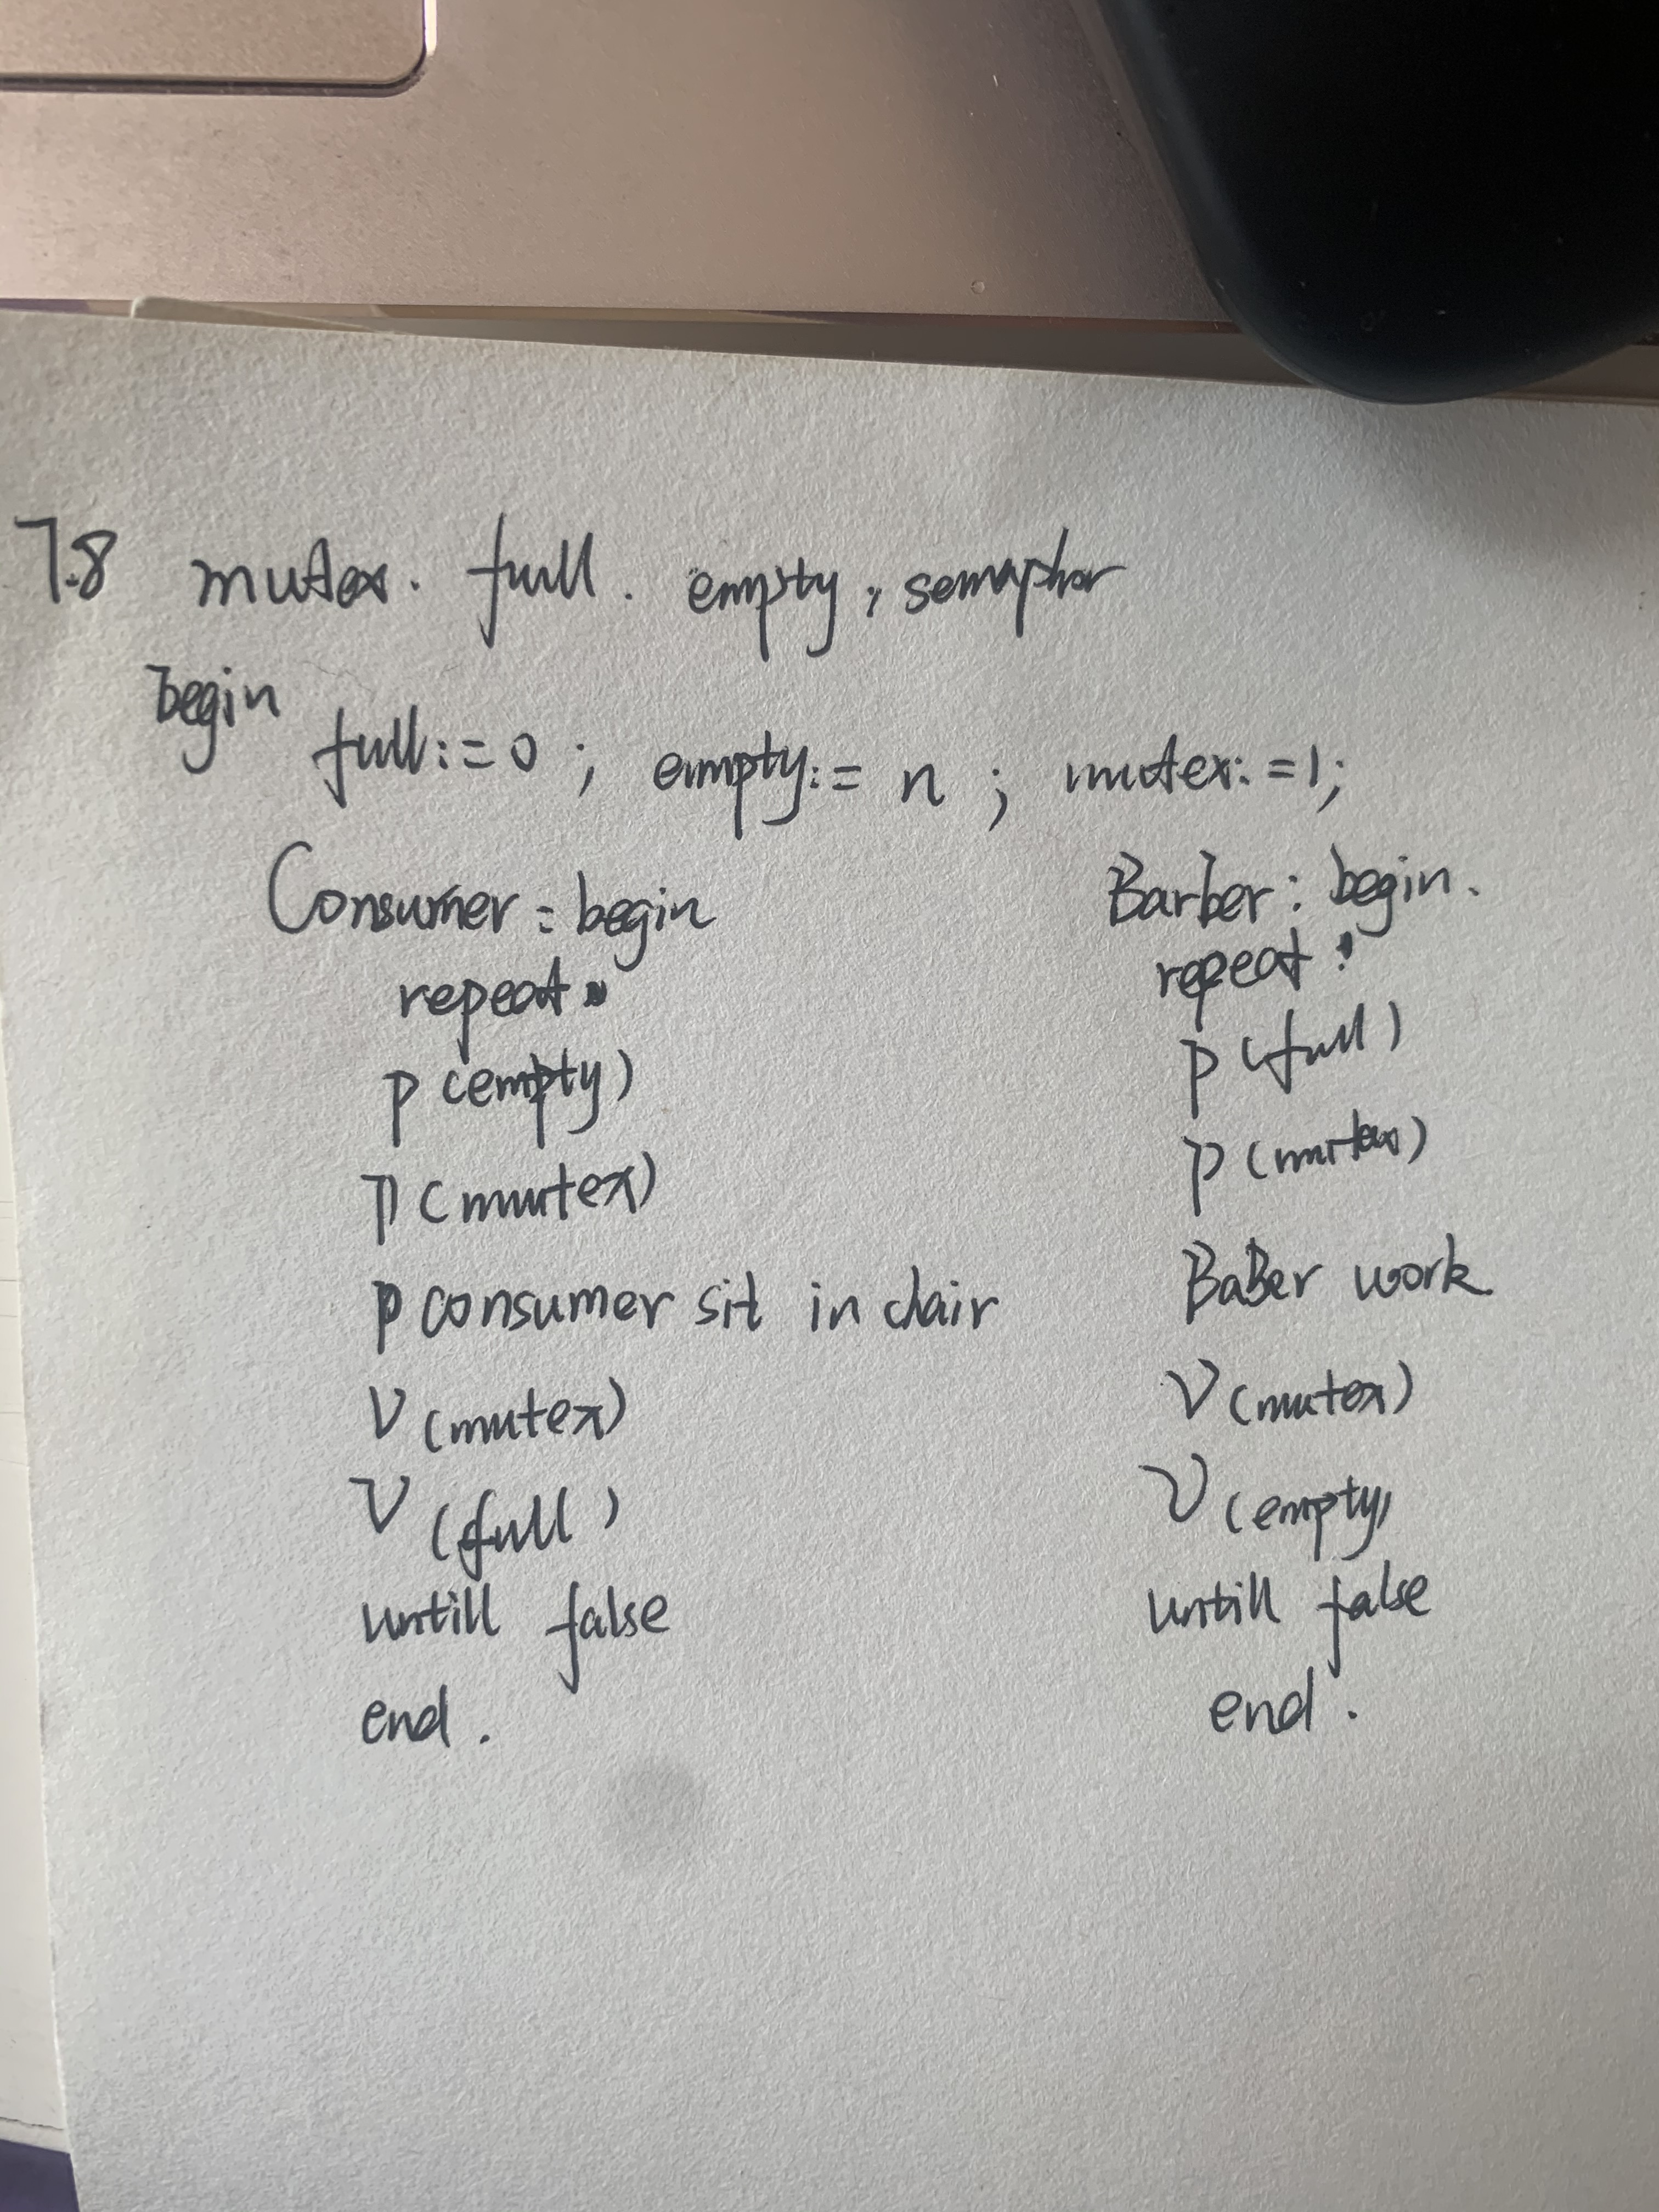 7.8 mutex. full. empty; semaphor
begin
full:=0; empty:= n; mutex:=1;
Consumer: begin
repeat
p(empty)
p(mutex)
p consumer sit in chair
V(mutex)
V(full)
untill false
end.
Barber: begin.
repeat:
p(full)
p(mutex)
BaBer work
V(mutex)
V(empty)
untill false
end.